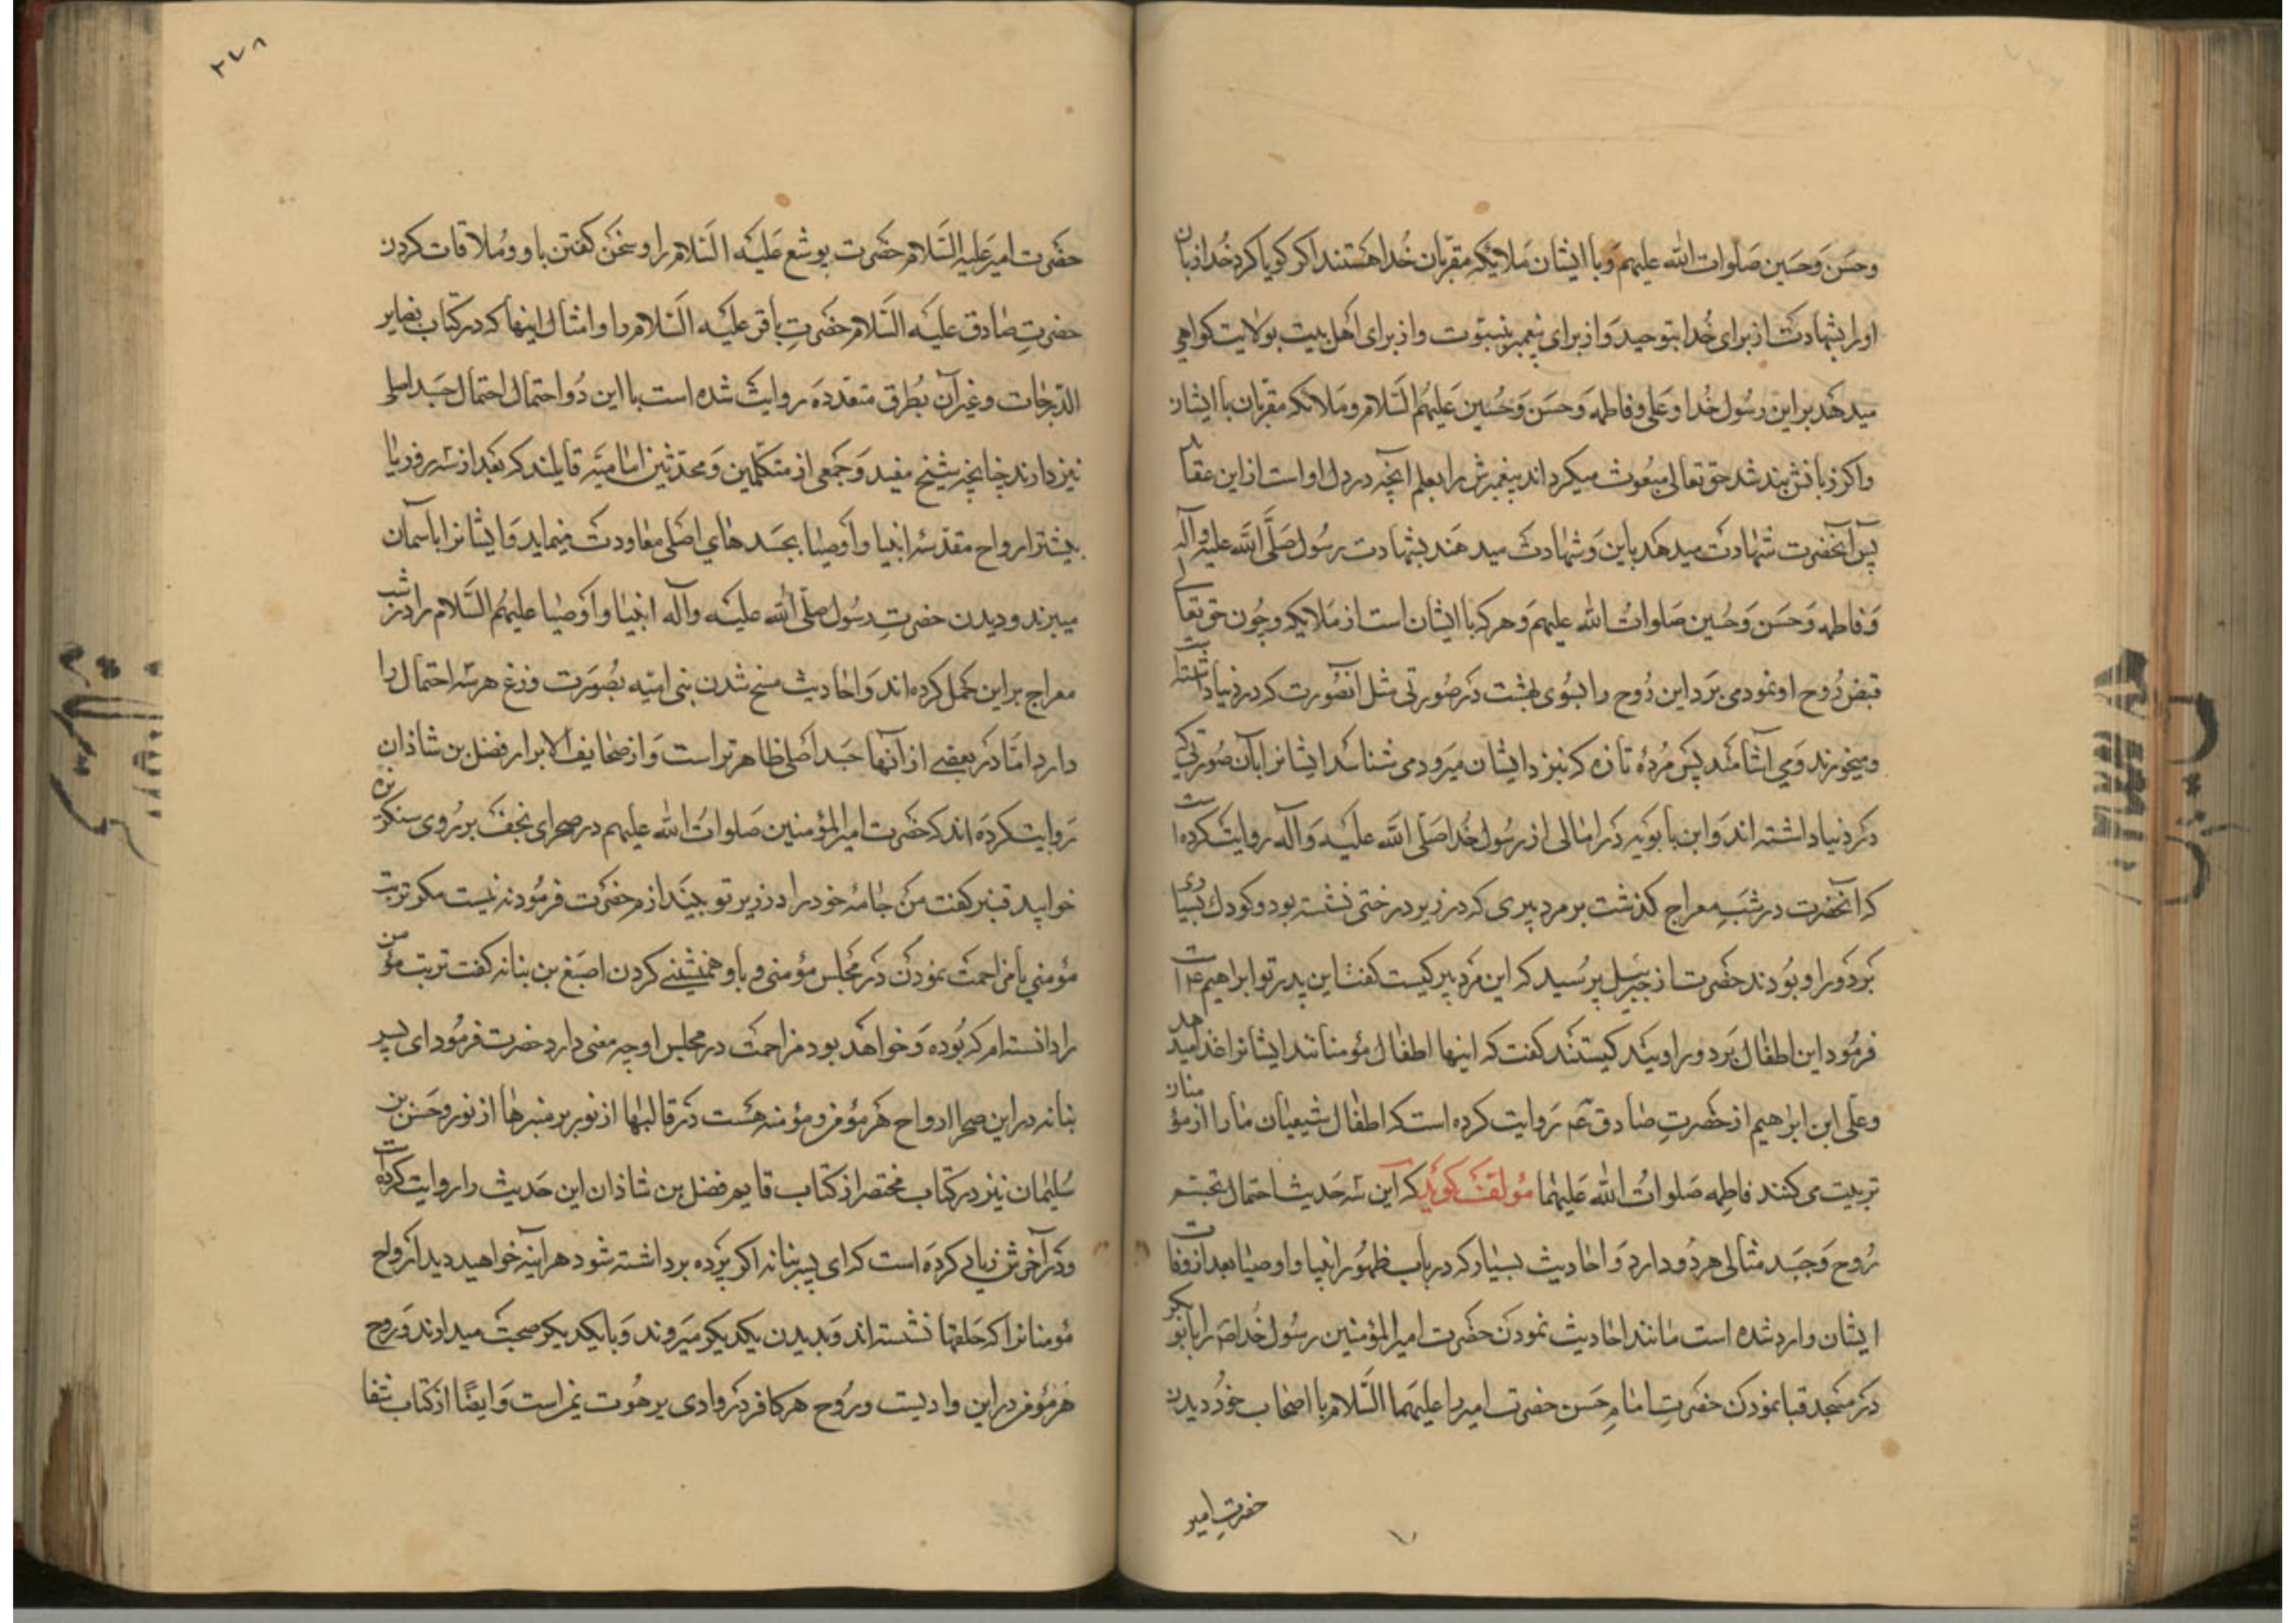 وحسن وحسین صلوات الله علیهم وبا ایشان ملائکه مقربان خدا هستند اکر کویا کرد خدا زبان
اورا بشهادت از برای خدا بتوحید واز برای پیغمبر بنبوّت واز برای اهل بیت بولایت کواهی
میدهد براین رسول خدا وعلی وفاطمه وحسن وحسین علیهم السّلام وملائکه مقربان با ایشان
واکر زبانش بند شد حق تعالی مبعوث میکرداند پیغمبرش را بعلم آنچه در دل اواست ازاین عقاید
پس آنحضرت شهادت میدهد باین وشهادت میدهند بشهادت رسول صلّی الله علیه وآله
وفاطمه وحسن وحسین صلوات الله علیهم وهرکه با ایشان است از ملایکه وچون حق تعالی
قبض روح او نمود می برد این روح را بسوی بهشت در صورتی مثل آنصورت که در دنیا داشته است
ومیخورند ومی آشامند پس مردهٔ تازه که بنزد ایشان میرود می شناسد ایشانرا بآن صورتی که
در دنیا داشته اند وابن بابویه در امالی از رسول خدا صلی الله علیه وآله روایت کرده است
که آنحضرت در شب معراج کذشت بر مرد پیری که در زیر درختی نشسته بود وکودک بسیاری
بر دور او بودند حضرت از جبرئیل پرسید که این مرد پیر کیست کفت این پدر تو ابراهیم ع است
فرمود این اطفال بر دور او بیند کیستند کفت که اینها اطفال مؤمنانند ایشانرا غذا میدهد
وعلی ابن ابراهیم از حضرت صادق ع روایت کرده است که اطفال شیعیان ما را از مؤمنان
تربیت می کنند فاطمه صلوات الله علیها مؤلف کوید که این سه حدیث احتمال تجسّم
روح وجسد مثالی هر دو دارد واحادیث بسیار که در باب ظهور انبیا واوصیا بعد از وفات
ایشان وارد شده است مانند احادیث نمودن حضرت امیرالمؤمنین رسول خدا ص را بابوبکر
در مسجد قبا نمودن حضرت امام حسن حضرت امیر را علیهما السّلام با اصحاب خود دیدن
حضرت امیر
۲۷۸
حضرت امیر علیه السّلام حضرت یوشع علیه السّلام را وسخن کفتن باو وملاقات کردن
حضرت صادق علیه السّلام حضرت باقر علیه السّلام را وامثال اینها که در کتاب بصایر
الدّرجات وغیر آن بطرق متعدده روایت شده است با این دو احتمال احتمال جسد اصلی
نیز دارند چنانچه شیخ مفید وجمعی از متکلمین ومحدّثین امامیّه قایلند که بعد از سه روز یا
بیشتر ارواح مقدسهٔ انبیا واوصیا بجسدهای اصلی معاودت مینماید وایشانرا بآسمان
میبرند ودیدن حضرت رسول صلّی الله علیه وآله انبیا واوصیا علیهم السّلام را در شب
معراج براین حمل کرده اند واحادیث مسخ شدن بنی امیّه بصورت وزغ هر سه احتمال را
دارد امّا در بعضی از آنها جسد اصلی ظاهرتر است واز صحایف الابرار فضل بن شاذان
روایت کرده اند که حضرت امیرالمؤمنین صلوات الله علیهم در صحرای نجف بر روی سنکریزه
خوابید قنبر کفت من جامهٔ خود را در زیر تو بیندازم حضرت فرمود نه نیست مکر تربت
مؤمنی یا مزاحمت نمودن در مجلس مؤمنی وباو همنشینی کردن اصبغ بن بنانه کفت تربت مؤمن
را دانستم که بوده وخواهد بود مزاحمت در مجلس او چه معنی دارد حضرت فرمود ای پسر
بنانه در این صحرا ارواح هر مؤمن ومؤمنه هست در قالبها از نور بر منبرها از نور وحسن بن
سلیمان نیز در کتاب مختصر از کتاب قایم فضل بن شاذان این حدیث را روایت کرده است
ودر آخرش زیاد کرده است که ای پسر بنانه اکر پرده برداشته شود هر آینه خواهید دید ارواح
مؤمنانرا که حلقها نشسته اند وبدیدن یکدیکر میروند وبا یکدیکر صحبت میدارند وروح
هر مؤمن در این وادیست وروح هر کافر در وادی برهوت یمن است وایضًا از کتاب شفا